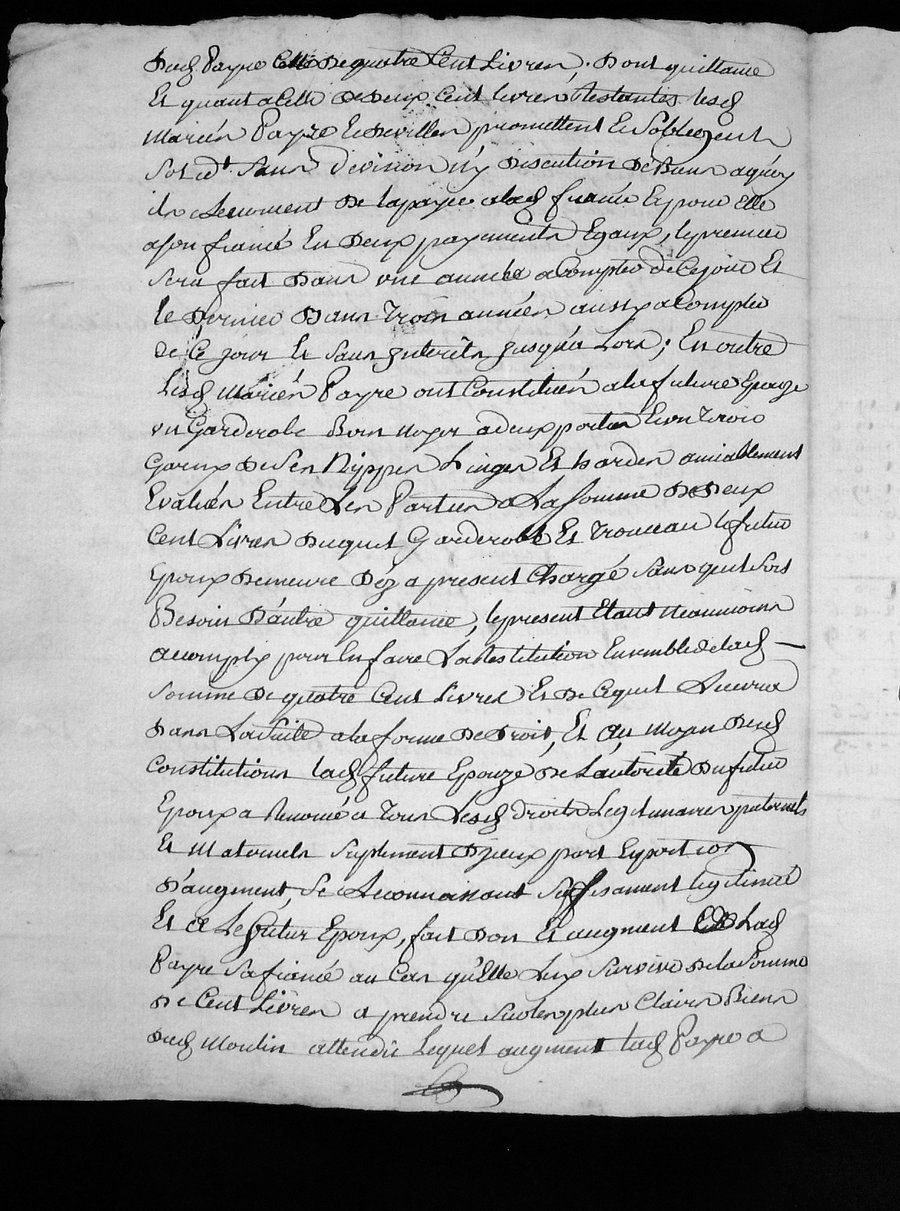 Dud Payre Celle de quatre Cent Livres, Dont quittance
Et quant a Celle de Deux Cent livres Restantes lesd
Mariés Payre Et Devilles promettent Et Soblegent
Solid.t Sans Division n'y Discution De Biens a quoy
ils Renoncent De la payer a lad fiancée Et pour Elle
a son fiancé En Deux payements Egaux, le premier
Sera fait Dans une année a Compter de Ce jour Et
le Dernier Dans Trois années aussy a Compter
de Ce jour Et Sans Interets jusqu'a Lors; En outre
Lesd Mariés Payre ont Constitués a la future Epouze
un Garderobe Bois noyer a deux portes Et son Trois
Garny de Ses Nippes Linges Et hardes amiablement
Evalués Entre Les Parties a La Somme De Deux
Cent Livres Duquel Garderobe Et Trouceau le futur
Epoux Demeure Dez a present Chargé Sans quil Soit
Besoin D'autre quittance, le present Etant Neanmoins
a comply pour En faire La Restitution Ensemble de lad
Somme De quatre Cent Livres Et de Cequil Recevra
Dans La Suite a la forme De Droit, Et au Moyen Desd
Constitutions lad future Epouze De L'autorité Du futur
Epoux a Renoncé a Tous Lesd Droits Legitimaires paternels
Et Maternels Suplement D'jeux part Et portion
D'augment, Se Reconnoissant Suffisament legitimée
Et Le futur Epoux, fait Don Et augment a Lad
Payre Sa fiancée au Cas qu'Elle Luy Survive De la Somme
De Cent Livres a prendre Sur les plus Clairs Biens
Dud Moulin attendu Lequel augment lad Payre a